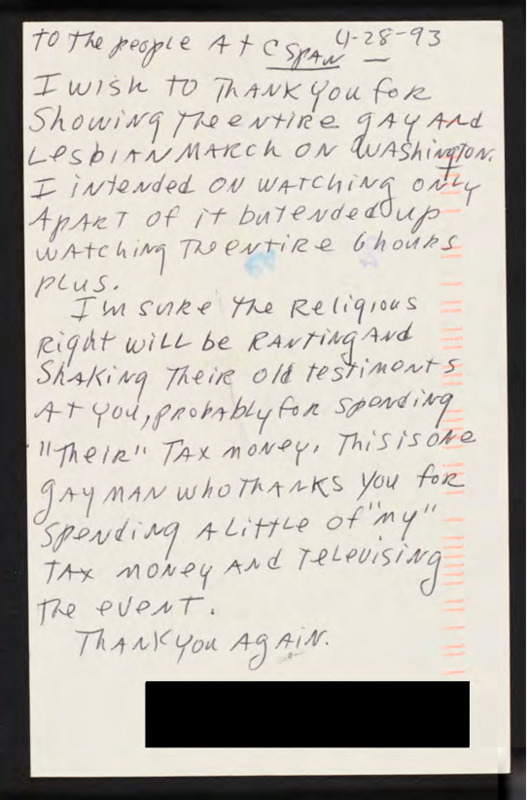 To the people At CSPAN 4-28-93
I wish to THANK you for
Showing The entire gay And
Lesbian March on Washington.
I intended on watching only
Apart of it but ended up
watching The entire 6 hours
plus.
I'm sure the Religious
Right will be Ranting And
Shaking Their old testiments
At you, probably for spending
"Their" Tax money. This is one
gay man who thanks you for
spending a little of "my"
Tax money and televising
The event.
Thank you Again.